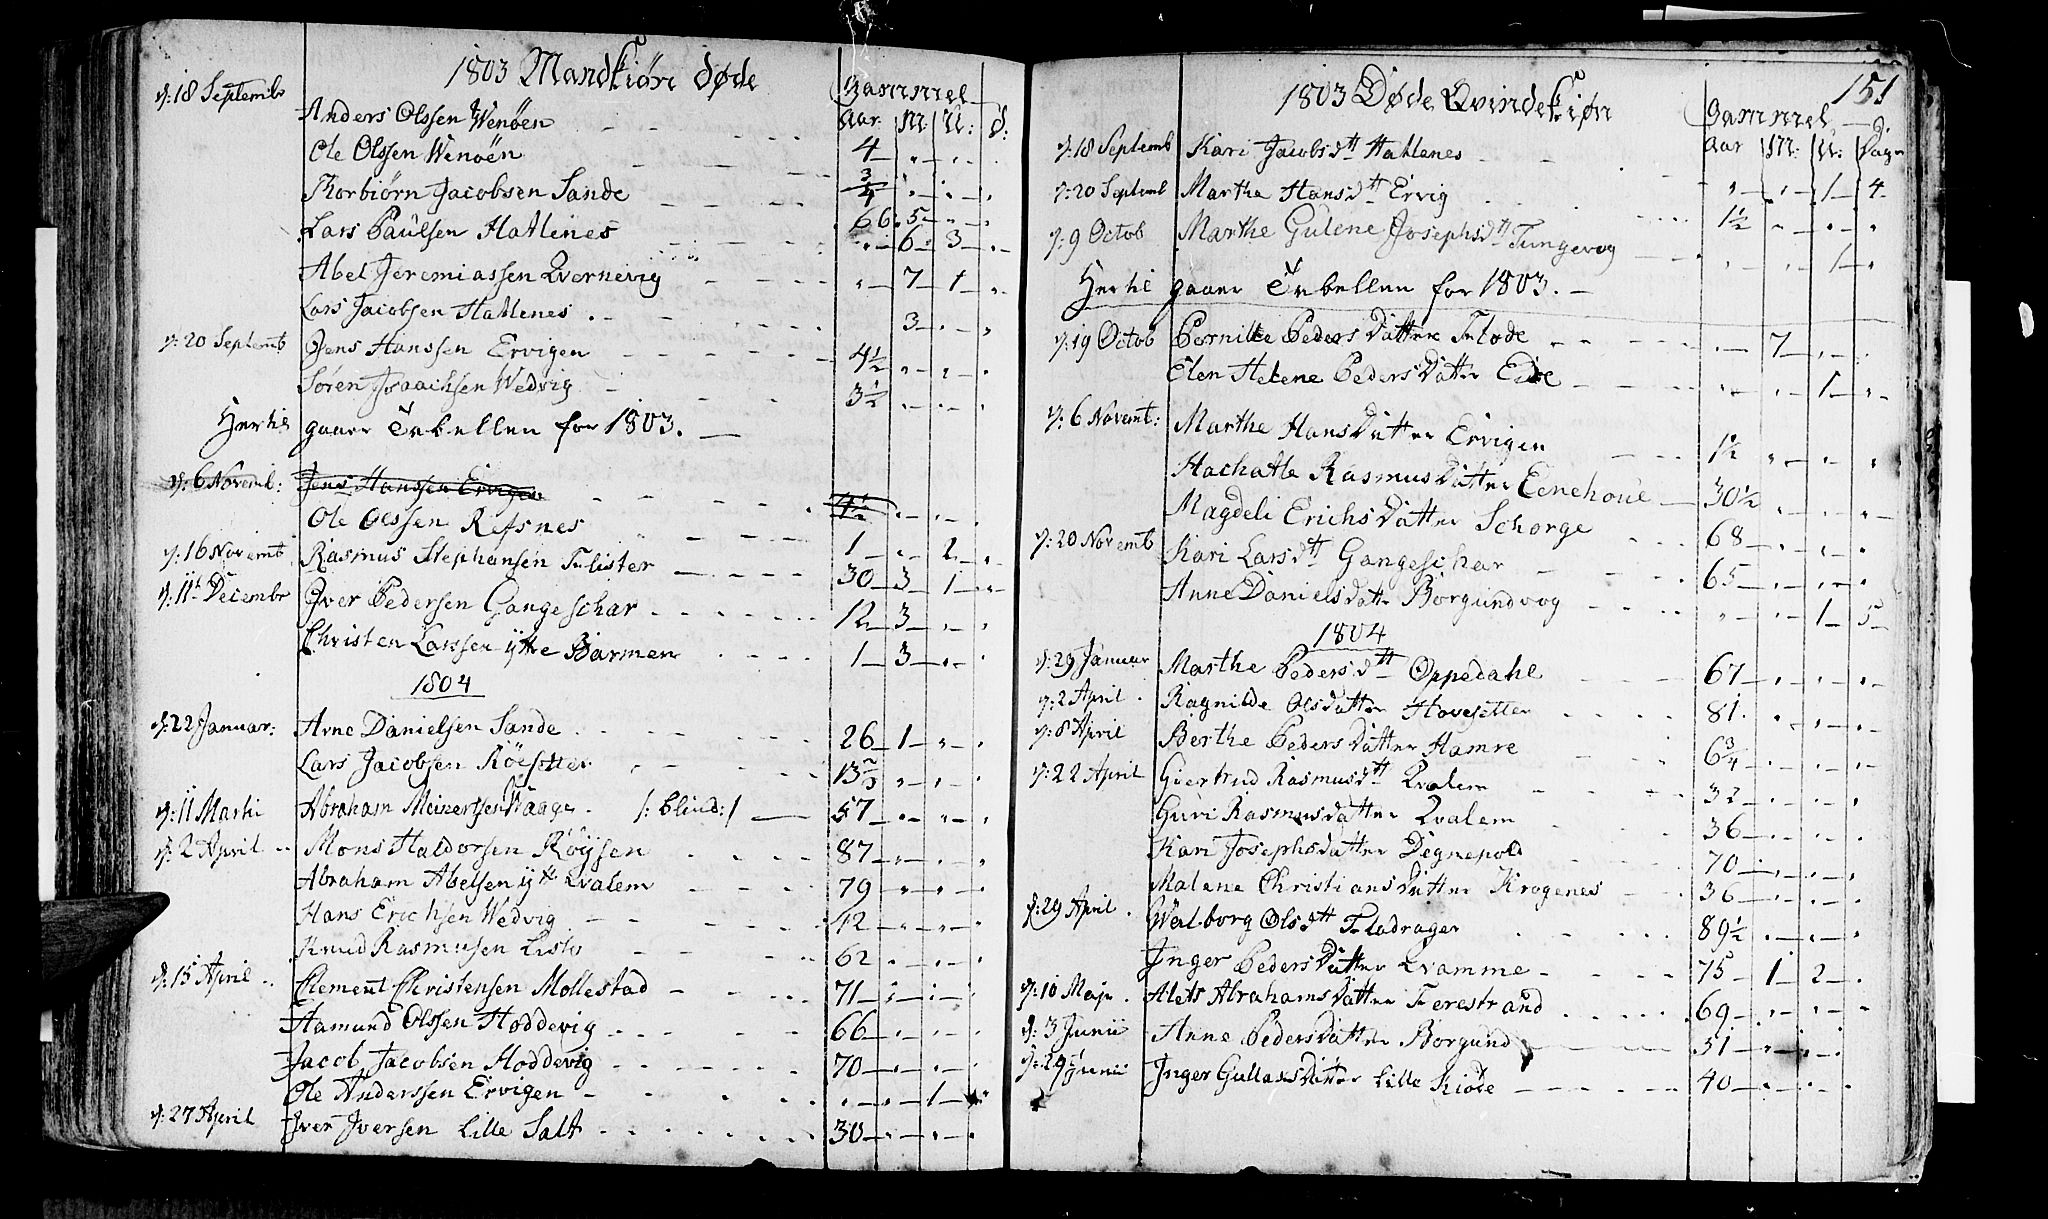 1803 Mandkiön døde
Gammel
Aar M: U: D:
d: 18 Septembr Anders Olssen Wenöen 4 „ „ „
Ole Olssen Wenöen 3/4 „ „ „
Thorbiörn Jacobsen Sande 66 5 „ „
Lars Paulsen Hatlenes „ 6 3 „
Abel Jeremiassen Qvernevig „ 7 1 „
Lars Jacobsen Hatlenes 3 „ „
d: 20 Septemb Jens Hanssen Ervigen 4½ „ „ „
Sören Isaachsen Wedvig 3½ „ „ „
Hertil gaaer Tabellen for 1803.
d: 6 Novemb: Jens Hanssen Ervigen 4½ „ „ „
Ole Olssen Refsnes 1 „ 2 „
d: 16 Novemb Rasmus Stephansen Fulister 30 3 1 „
d: 11t Decembr Iver Pedersen Gangeschar 12 3 „ „
Christen Larssen ÿttre Barmen 1 3 „ „
1804
d: 22 Januar: Arne Danielsen Sande 26 1 „ „
Lars Jacobsen Röesetter 13 2/3 „ „ „
d: 11 Martii Abraham Meinertsen Waage /: blind:/ 57 „ „ „
d: 2 April Mons Haldorsen Röÿsen 87 „ „ „
Abraham Abelsen ÿtt Qvalem 79 „ „ „
Hans Erichsen Wedvig 42 „ „ „
Knud Rasmusen Listo 62 „ „ „
d: 15 April Clement Christensen Mollestad 71 „ „ „
Hamund Olssen Hoddevig 66 „ „ „
Jacob Jacobsen Hoddevig 70 „ „ „
Ole Anderssen Ervigen „ „ 1 „
d: 27 April Iver Iversen Lille Salt 30 „ „ „
151
1803 Døde Qvindekiøn
Gammel
Aar M: U: Dage
d: 18 Septemb Kari Jacobsdtt Hatlenes „ „ 1 4
d: 20 Septemb Marthe Hansdtt Ervig 1½ „ „ „
d: 9 Octob Marthe Gulene Josephsdtt Tungevog „ „ 1 „
Hertil gaaer Tabellen for 1803.
d: 19 Octob Pernille Peders Datter Flode „ 7 „ „
Elen Helene Peders Datter Eide „ „ 1 „
d: 6 Novemb: Marthe Hans Datter Ervigen 1½ „ „ „
Hachatle Rasmus Datter Eenehoue 30½ „ „ „
Magdeli Erichs Datter Schorge 68 „ „ „
d: 20 Novemb Kari Larsdtt Gangeschar 65 „ „ „
Anne Daniels Datter Borgundvog „ „ 1 5
1804
d: 29 Januar Marthe Pedersdtt Oppedahl 67 „ „ „
d: 2 April Ragnilde Olsdatter Hovesetter 81 „ „ „
d: 8 April Berthe Peders Datter Hamre 6¾ „ „ „
d: 22 April Giertrud Rasmusdtt Qvalem 32 „ „ „
Guri Rasmusdatter Qvalem 36 „ „ „
Kari Josephsdatter Degnepold 70 „ „ „
Malene Christians Datter Krogenes 36 „ „ „
d: 29 April Walborg Olsdtt Fladrager 89½ „ „ „
Inger Peders Datter Qvamme 75 1 2 „
d: 10 Maji Alets Abrahams Datter Ferestrand 69 „ „ „
d: 3 Junii Anne Peders Datter Borgund 31 „ „ „
d: 29 Junii Inger Gullaks Datter Lille Kiöde 40 „ „ „